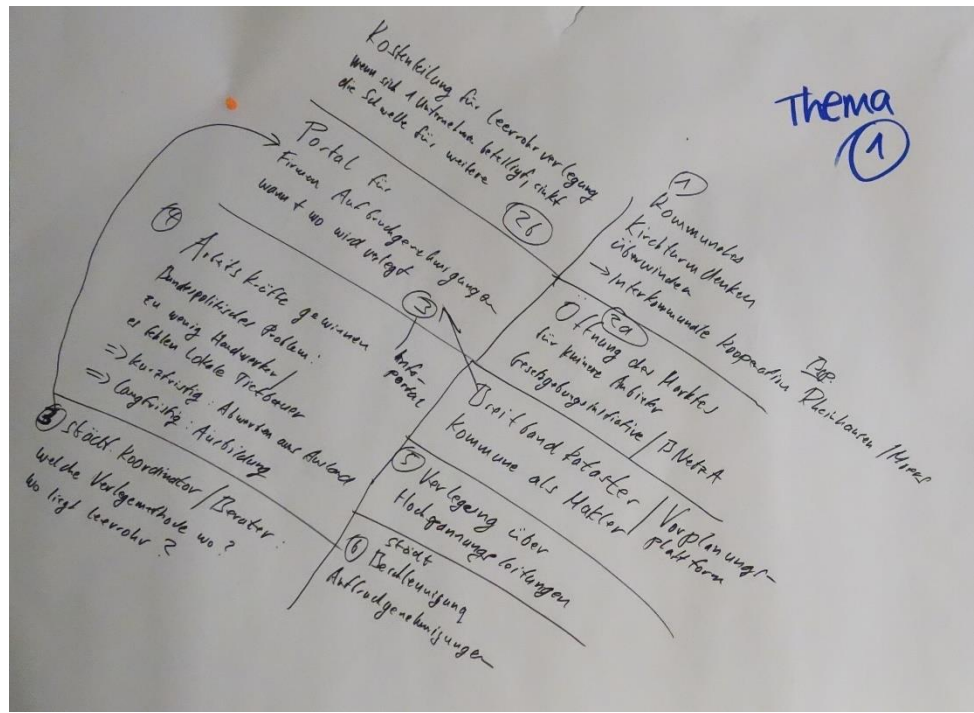 Thema
1
Kostenteilung für Leerrohrverlegung
wenn sich 1 Unternehmen beteiligt, sinkt
die Schwelle für weitere
2b
Portal für
Firmen Aufbruchgenehmigungen
wann + wo wird verlegt
3
Info-
portal
4
Arbeitskräfte gewinnen
Bundespolitisches Problem:
zu wenig Handwerker/
es fehlen lokale Tiefbauer
=> kurzfristig: Abwerben aus Ausland
=> Langfristig: Ausbildung
3 städt. Koordinator / Berater:
welche Verlegemethode wo?
wo liegt Leerrohr?
1
Kommunales
Kirchturmdenken
überwinden
-> Interkommunale Kooperation
Rheinhausen / Moers
2a
Öffnung des Marktes
für kleinere Anbieter
Gesetzgebungsinitiative / BNetzA
Breitbandkataster / Vorplanungs-
Kommune als Makler plattform
5 Verlegung über
Hochspannungsleitungen
6 städt
Beschleunigung
Aufbruchgenehmigungen